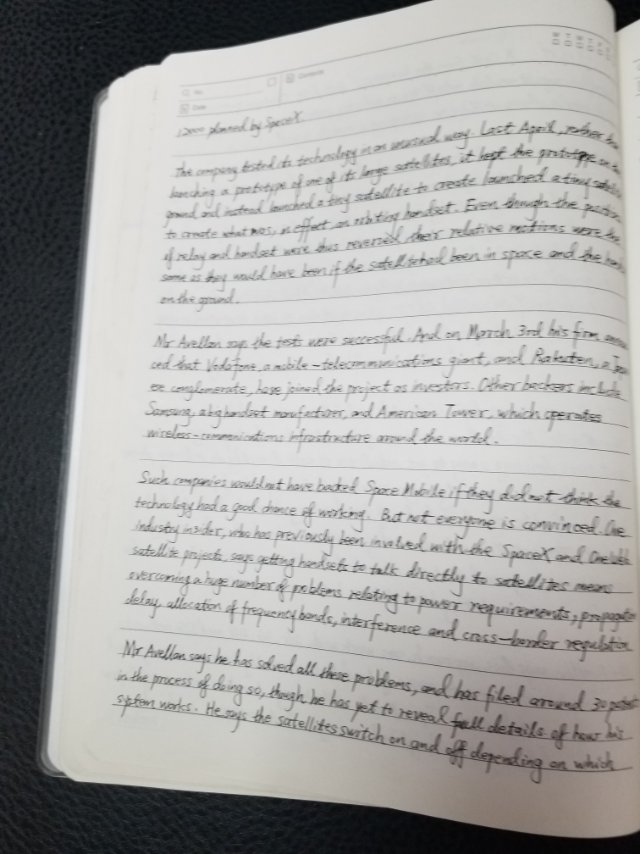 No.
Contents
M T W T F S
Date
12000 planned by SpaceX
The company tested its technology in an unusual way. Last April, rather
launching a prototype of one of its large satellites, it kept the prototype on
ground and instead launched a tiny satellite to create launched a tiny
to create what was, in effect, an orbiting handset. Even though the
of relay and handset were thus reversed, their relative motions were the
same as they would have been if the satellite had been in space and the
on the ground.
Mr Avellan says the tests were successful. And on March 3rd his firm
ced that Vodafone, a mobile-telecommunications giant, and Rakuten, a
ese conglomerate, have joined the project as investors. Other backers include
Samsung, a big handset manufacturer, and American Tower, which operates
wireless-communications infrastructure around the world.
Such companies would not have backed Space Mobile if they did not think the
technology had a good chance of working. But not everyone is convinced. One
industry insider, who has previously been involved with the SpaceX and OneWeb
satellite projects, says getting handsets to talk directly to satellites means
overcoming a huge number of problems relating to power requirements, propagation
delay, allocation of frequency bands, interference and cross-border regulation
Mr Avellan says he has solved all these problems, and has filed around 30
in the process of doing so, though he has yet to reveal full details of how his
system works. He says the satellites switch on and off depending on which